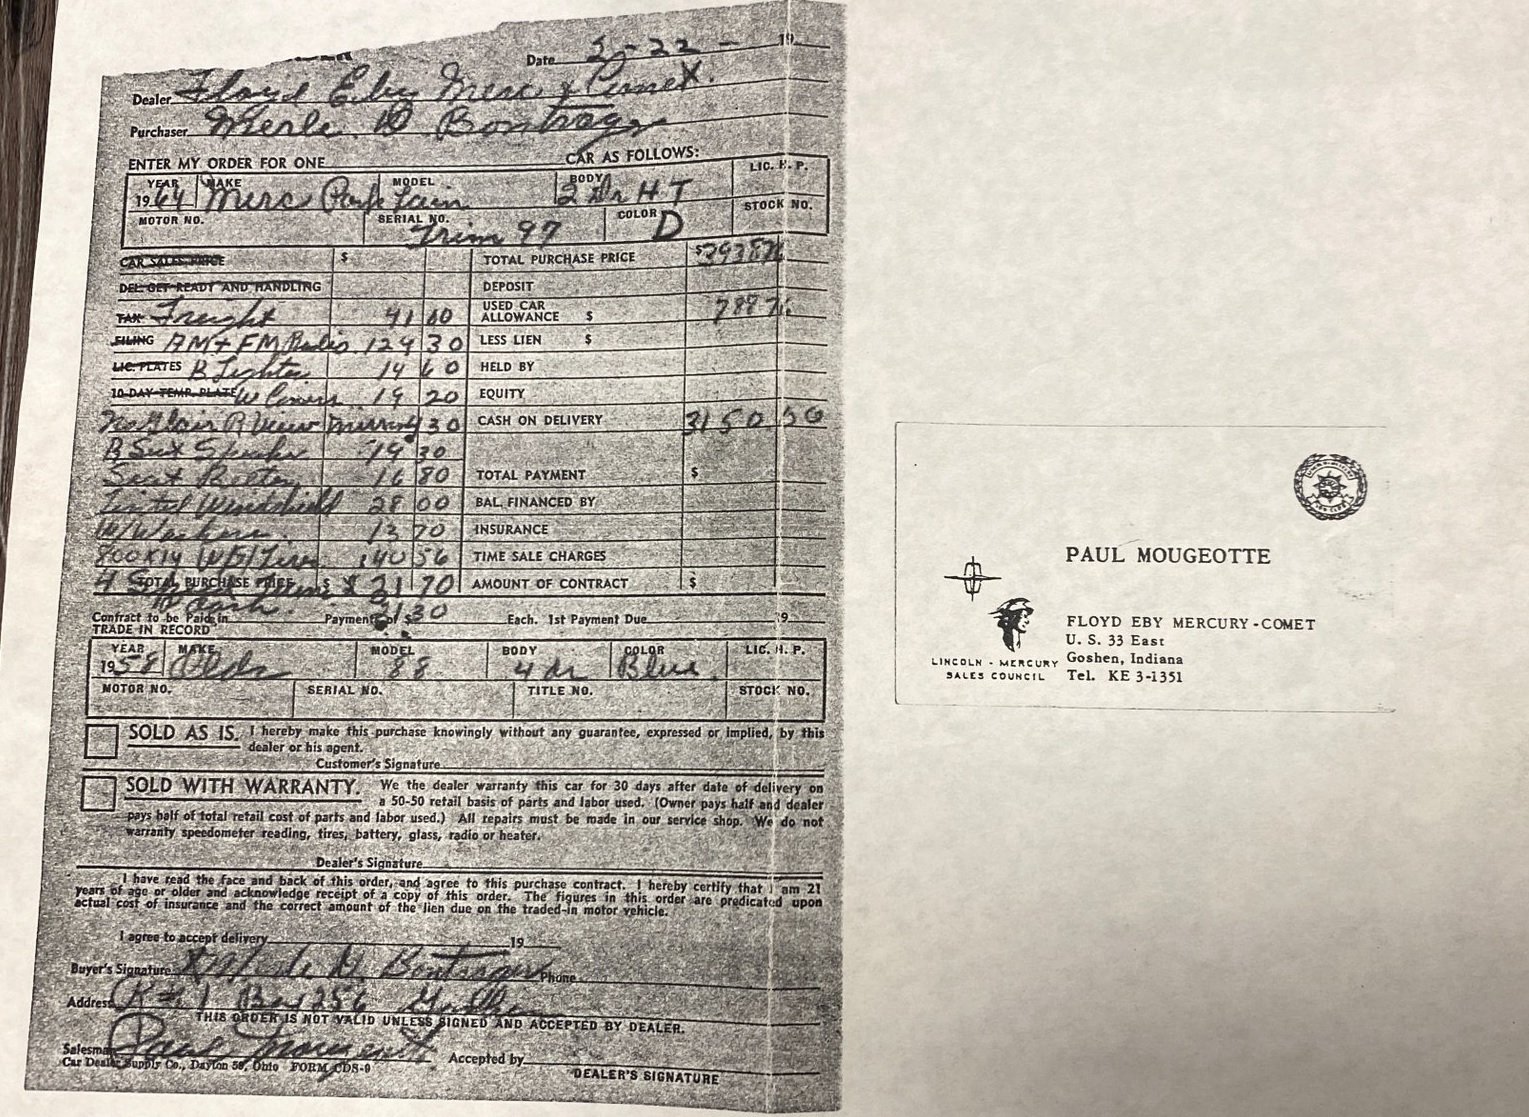 Date 5-22- 19
Dealer Floyd Eby Merc & Comet.
Purchaser Merle D Bontrager
ENTER MY ORDER FOR ONE CAR AS FOLLOWS:
YEAR MAKE MODEL BODY LIC. H. P.
1964 Merc Park Lain 2 Dr H T
MOTOR NO. SERIAL NO. COLOR STOCK NO.
Trim 97 D
CAR SALES PRICE $ TOTAL PURCHASE PRICE $3938 76
DEL. GET READY AND HANDLING DEPOSIT
TAX Freight 41 60 USED CAR ALLOWANCE $ 788 76
FILING AM+FM Radio 129 30 LESS LIEN $
LIC. PLATES B Lights 14 60 HELD BY
10-DAY TEMP. PLATE W Covers 19 20 EQUITY
No Glair R View Mirror 30 CASH ON DELIVERY 3150 56
B Seat Speaker 19 30
Seat Belts 16 80 TOTAL PAYMENT $
Tinted Windshield 28 00 BAL. FINANCED BY
W/Washers 13 70 INSURANCE
800x14 W/S/Tires 140 56 TIME SALE CHARGES
4 Speed Trans TOTAL PURCHASE PRICE $ 21 70 AMOUNT OF CONTRACT $
P Dash. 21 30
Contract to be Paid in Payments of $ Each. 1st Payment Due 19
TRADE IN RECORD
YEAR MAKE MODEL BODY COLOR LIC. H. P.
1958 Olds 88 4 dr Blue
MOTOR NO. SERIAL NO. TITLE NO. STOCK NO.
SOLD AS IS. I hereby make this purchase knowingly without any guarantee, expressed or implied, by this
dealer or his agent.
Customer's Signature
SOLD WITH WARRANTY. We the dealer warranty this car for 30 days after date of delivery on
a 50-50 retail basis of parts and labor used. (Owner pays half and dealer
pays half of total retail cost of parts and labor used.) All repairs must be made in our service shop. We do not
warranty speedometer reading, tires, battery, glass, radio or heater.
Dealer's Signature
I have read the face and back of this order, and agree to this purchase contract. I hereby certify that I am 21
years of age or older and acknowledge receipt of a copy of this order. The figures in this order are predicated upon
actual cost of insurance and the correct amount of the lien due on the traded-in motor vehicle.
I agree to accept delivery 19
Buyer's Signature X Merle D. Bontrager Phone
Address R #1 Box 256 Goshen
THIS ORDER IS NOT VALID UNLESS SIGNED AND ACCEPTED BY DEALER.
Salesman Paul Mougeotte Accepted by
Car Dealer Supply Co., Dayton 59, Ohio FORM CDS-9 DEALER'S SIGNATURE
PAUL MOUGEOTTE
FLOYD EBY MERCURY-COMET
U. S. 33 East
Goshen, Indiana
Tel. KE 3-1351
LINCOLN - MERCURY
SALES COUNCIL